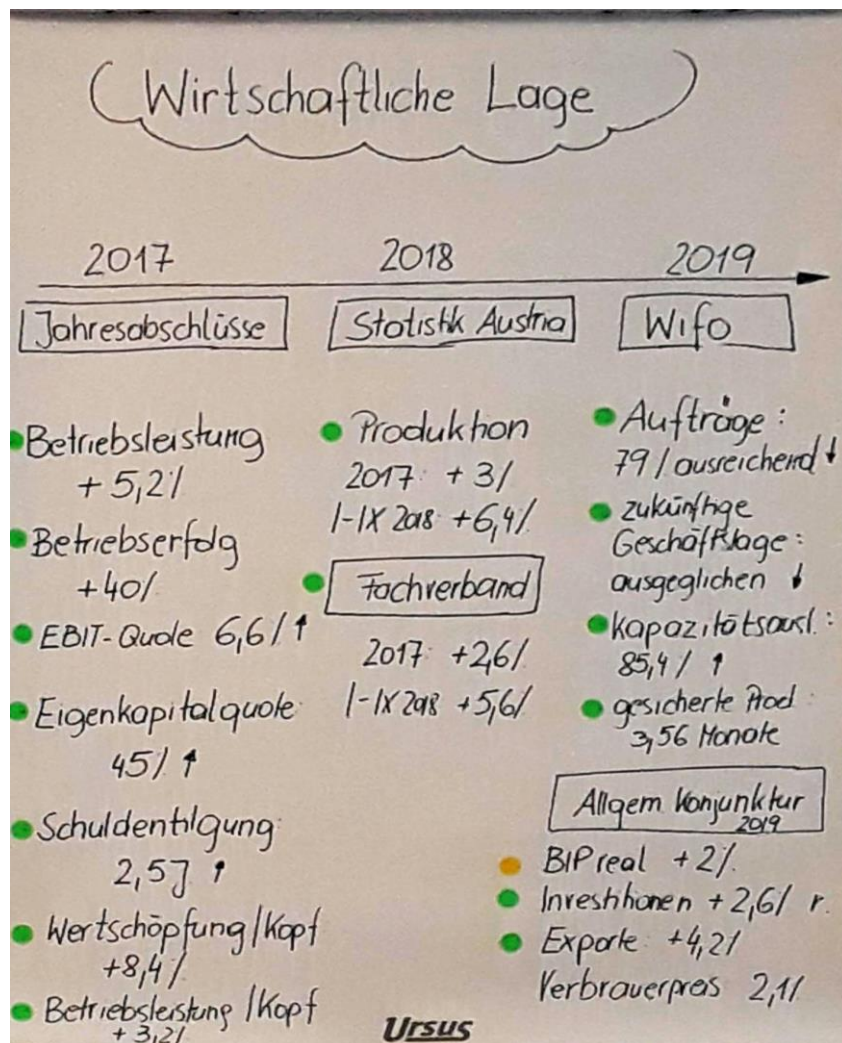 Wirtschaftliche Lage
2017 2018 2019
Jahresabschlüsse
Betriebsleistung
+ 5,2%
Betriebserfolg
+40%
EBIT-Quote 6,6% ↑
Eigenkapitalquote:
45% ↑
Schuldentilgung:
2,5J ↑
Wertschöpfung/Kopf
+8,4%
Betriebsleistung/Kopf
+ 3,2%
Statistik Austria
Produktion
2017: +3%
I-IX 2018 +6,4%
Fachverband
2017: +2,6%
I-IX 2018 +5,6%
Wifo
Aufträge:
79% ausreichend ↓
zukünftige
Geschäftslage:
ausgeglichen ↓
Kapazitätsausl.:
85,4% ↑
gesicherte Prod.:
3,56 Monate
Allgem Konjunktur
2019
BIP real +2%
Investitionen +2,6% r.
Exporte: +4,2%
Verbraucherpreis 2,1%
Ursus